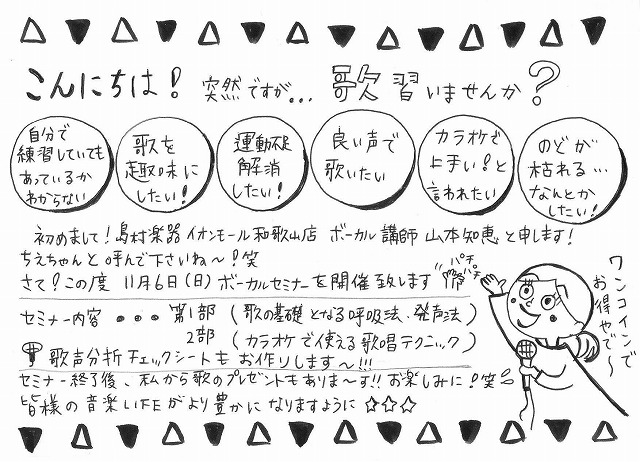 こんにちは! 突然ですが... 歌習いませんか?
自分で
練習していても
あっているか
わからない
歌を
趣味に
したい!
運動不足
解消
したい!
良い声で
歌いたい
カラオケで
上手い!と
言われたい
のどが
枯れる...
なんとか
したい!
初めまして!島村楽器 イオンモール和歌山店 ボーカル講師 山本知恵と申します!
ちえちゃんと呼んで下さいね〜!笑
さて!この度 11月6日(日) ボーカルセミナーを開催致します
パチ
パチ
ワンコインで
お得やで〜
セミナー内容 ・・・ 第1部 (歌の基礎となる呼吸法、発声法)
2部 (カラオケで使える歌唱テクニック)
歌声分析チェックシートもお作りします〜!!!
セミナー終了後、私から歌のプレゼントもありま〜す!!お楽しみに!笑
皆様の音楽LIFEがより豊かになりますように☆☆☆